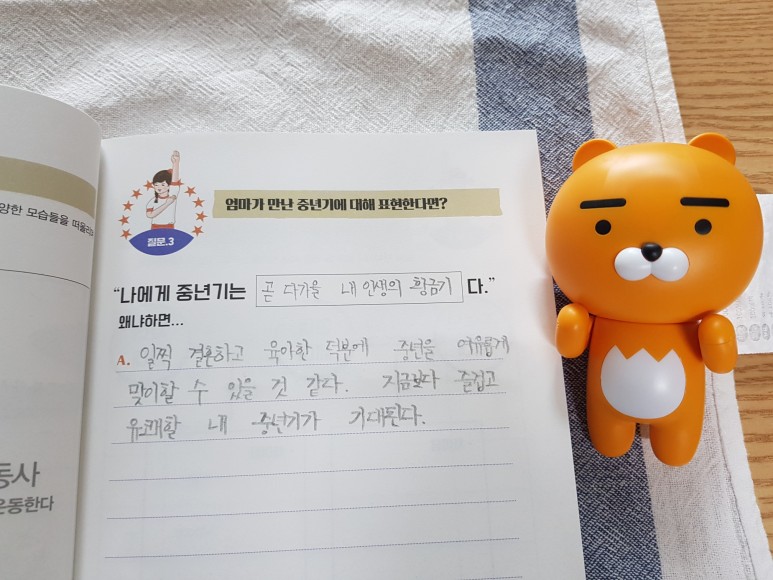 양한 모습들을 떠올리
엄마가 만난 중년기에 대해 표현한다면?
질문.3
"나에게 중년기는 곧 다가올 내 인생의 황금기 다."
왜냐하면...
A. 일찍 결혼하고 육아한 덕분에 중년을 여유롭게
맞이할 수 있을 것 같다. 지금보다 즐겁고
유쾌할 내 중년기가 기대된다.
동사
운동한다